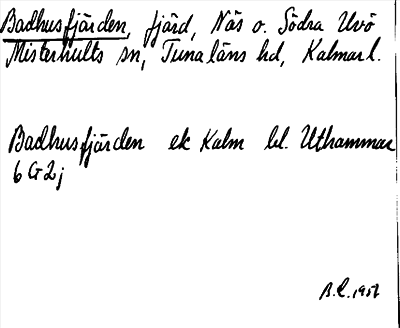 Badhusfjärden, fjärd, Näs o. Södra Uvö
Misterhults sn, Tunaläns hd, Kalmar l.
Badhusfjärden ek Kalm bl. Uthammar
6 G 2 j